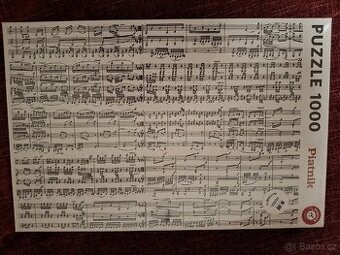 PUZZLE 1000
Piatnik
Bazoš.cz